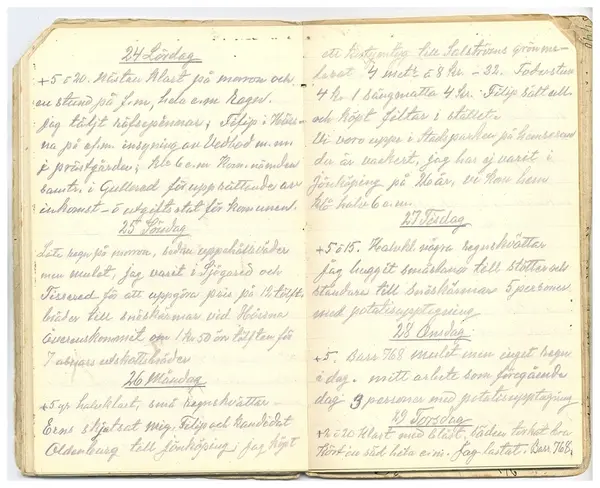 24 Lördag
+5 o 20. Nästan klart på morron och
en stund på f.m, hela e.m Regn.
Jag täljt räfsepinnar, Filip i
na på e.m. insyning av Vedbod m.m
i prästgården; Klo 6 e.m Kom. nämnden
samt. i Gullered för upprättande av
inkomst- o utgiftsstat för komunen.
25 Söndag
Lite regn på morron, sedan uppehållsväder
men mulet, jag varit i Sjögared och
Tissered för att uppgöra pris på 12 tolft.
bräder till snöskärmar vid
överenskommet om 1 kr 50 öre tolften för
7
26 Måndag
+5 gr halvklart, små regnskvätter
Erns skjutsat mig, Filip och kandidat
Oldenburg till Jönköping, jag köpt
ett kostymtyg till
4 metr a 8 kr - 32.
4 kr. 1 sängmatta 4 kr. Filip sålt ull
och köpt filtar i stället.
Vi voro uppe i Stadsparken på hemresan
da är vackert, jag har ej varit i
Jönköping på 26 år, vi kom hem
Klo halv 6 e.m.
27 Tisdag
+5 o 15. Halvkl. några regnskvätter
Jag huggit smäslanor till stöttor och
ståndare till snöskärmar 5 personer
med potatisupptagning
28 Onsdag
+5. Barr 768 mulet men inget regn
i dag. mitt arbete som föregående
dag 9 personer med potatisupptagning
29 Torsdag
+2 o 20 klart med blåst, säden torkat bra
kört en säd hela e.m. Jag lastat. Barr 768.